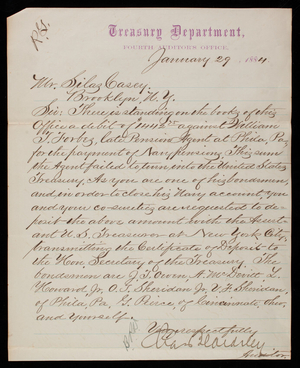 Treasury Department,
FOURTH AUDITOR'S OFFICE,
January 29, 1884.
Mr. Silas Casey
Brooklyn, N. Y.
Sir: There is standing on the books of this
Office a debit of against William
T. Forbes, late Pension Agent at Phila, Pa,
for the payment of Navy pensions. This sum
the Agent failed to turn into the United States
Treasury. As you are one of his bondsmen,
and in order to close his Navy account, you
and your co-sureties are requested to de-
posit the above amount with the Assist-
ant U. S. Treasurer at New York City,
transmitting the Certificate of Deposit to
the Hon. Secretary of the Treasury. The
bondsmen are J. T. Owen, A. McDevitt, L.
Howard, Jr, O. F. Sheridan Jr, V. F. Sheridan,
of Phila, Pa, G. Peirce, of Cincinnati, Ohio,
and yourself.
Very respectfully
Auditor.